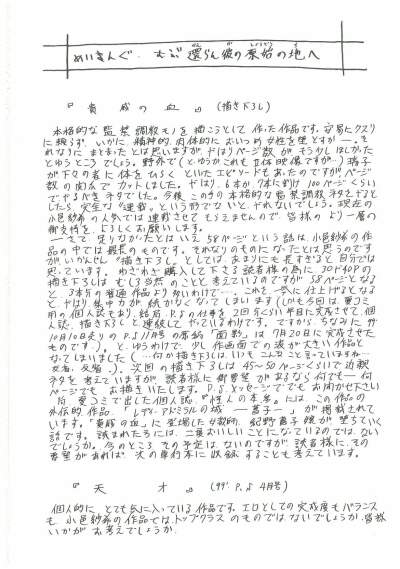 めいきんぐ・むご還らん彼の原始の地へ
『貴腐の血』(描き下ろし)
本格的な監禁調教モノを描こうとして作った作品です。安易にクスリ
に頼らず、いかに、精神的、肉体的に、おいつめ女性を堕とすか―。そ
れなりに、まとまったとは思いますが、やはりページ数がもう少しほしかった
とゆうところでしょう。野外で
が下々の者に体をひらくといったエピソードもあったのですがページ
数の関系でカットしました。やはり、6本か7本にわけ100ページくらい
でやるべきネタでした。今後、このテの本格的な監禁調教ネタをするとしたら
完全な"連載"という形でないとやれないでしょう。現在の
小邑紗希の人気では連載させてもらえませんので皆様のより一層の
御支持を、よろしくお願いします。
―さて、足りなかったとはいえ58ページという話は、小邑紗希の作
品の中では最長のものです。それなりのものになったとは思うのです
がいかんせん"描き下ろし"としては、あまりにも長すぎると自分では
思っています。わざわざ購入して下さる読者様の為に30Pや40Pの
描き下ろしはむしろ当然のことと考えているのですが58ページとなる
と3本分の普通作品より多いわけで…。一気に仕上げるとなる
とやはり集中力が続かなくなってしまいます
用の個人誌もあり、結局P.Sの仕事を2回引くらい
人誌、描き下ろしと連続してやっているわけです。ですから、ちなみに
10月10日売りのP.S11月号の原稿「面影」は7月20日に完成させた
ものです。)。とゆうわけで、少し作画面での波が大きい作品と
なってしまいました(…何か描き下ろしは、いつもこんなこと言っていますね…
反省、反省)。次回の描き下ろしは45〜50ページくらいで近親
ネタを考えていますが読者様に御要望があるなら何でも一何
ページでもお描きいたします。P.Sメッセージででもお聞かせ下さい
尚、夏コミで出した個人誌『性人の本』には、この作品の
外伝的作品、「レディ・アドミラルの城 ―蕗子―」が掲載されて
います。『貴腐の血』に登場した女教師、紀野蕗子嬢が堕ちていく
話です。読まれた方には、二重おいしいことになっているのではないで
しょうか。今のところその予定はないのですが読者様に、その
希望があれば次の単行本に収録することも考えています。
『天才』(99'. P.S 4月号)
個人的にとても気に入っている作品です。エロとしての完成度もバランス
も、小邑紗希の作品では、トップクラスのものではないでしょうか。皆様
いかがお考えでしょうか。